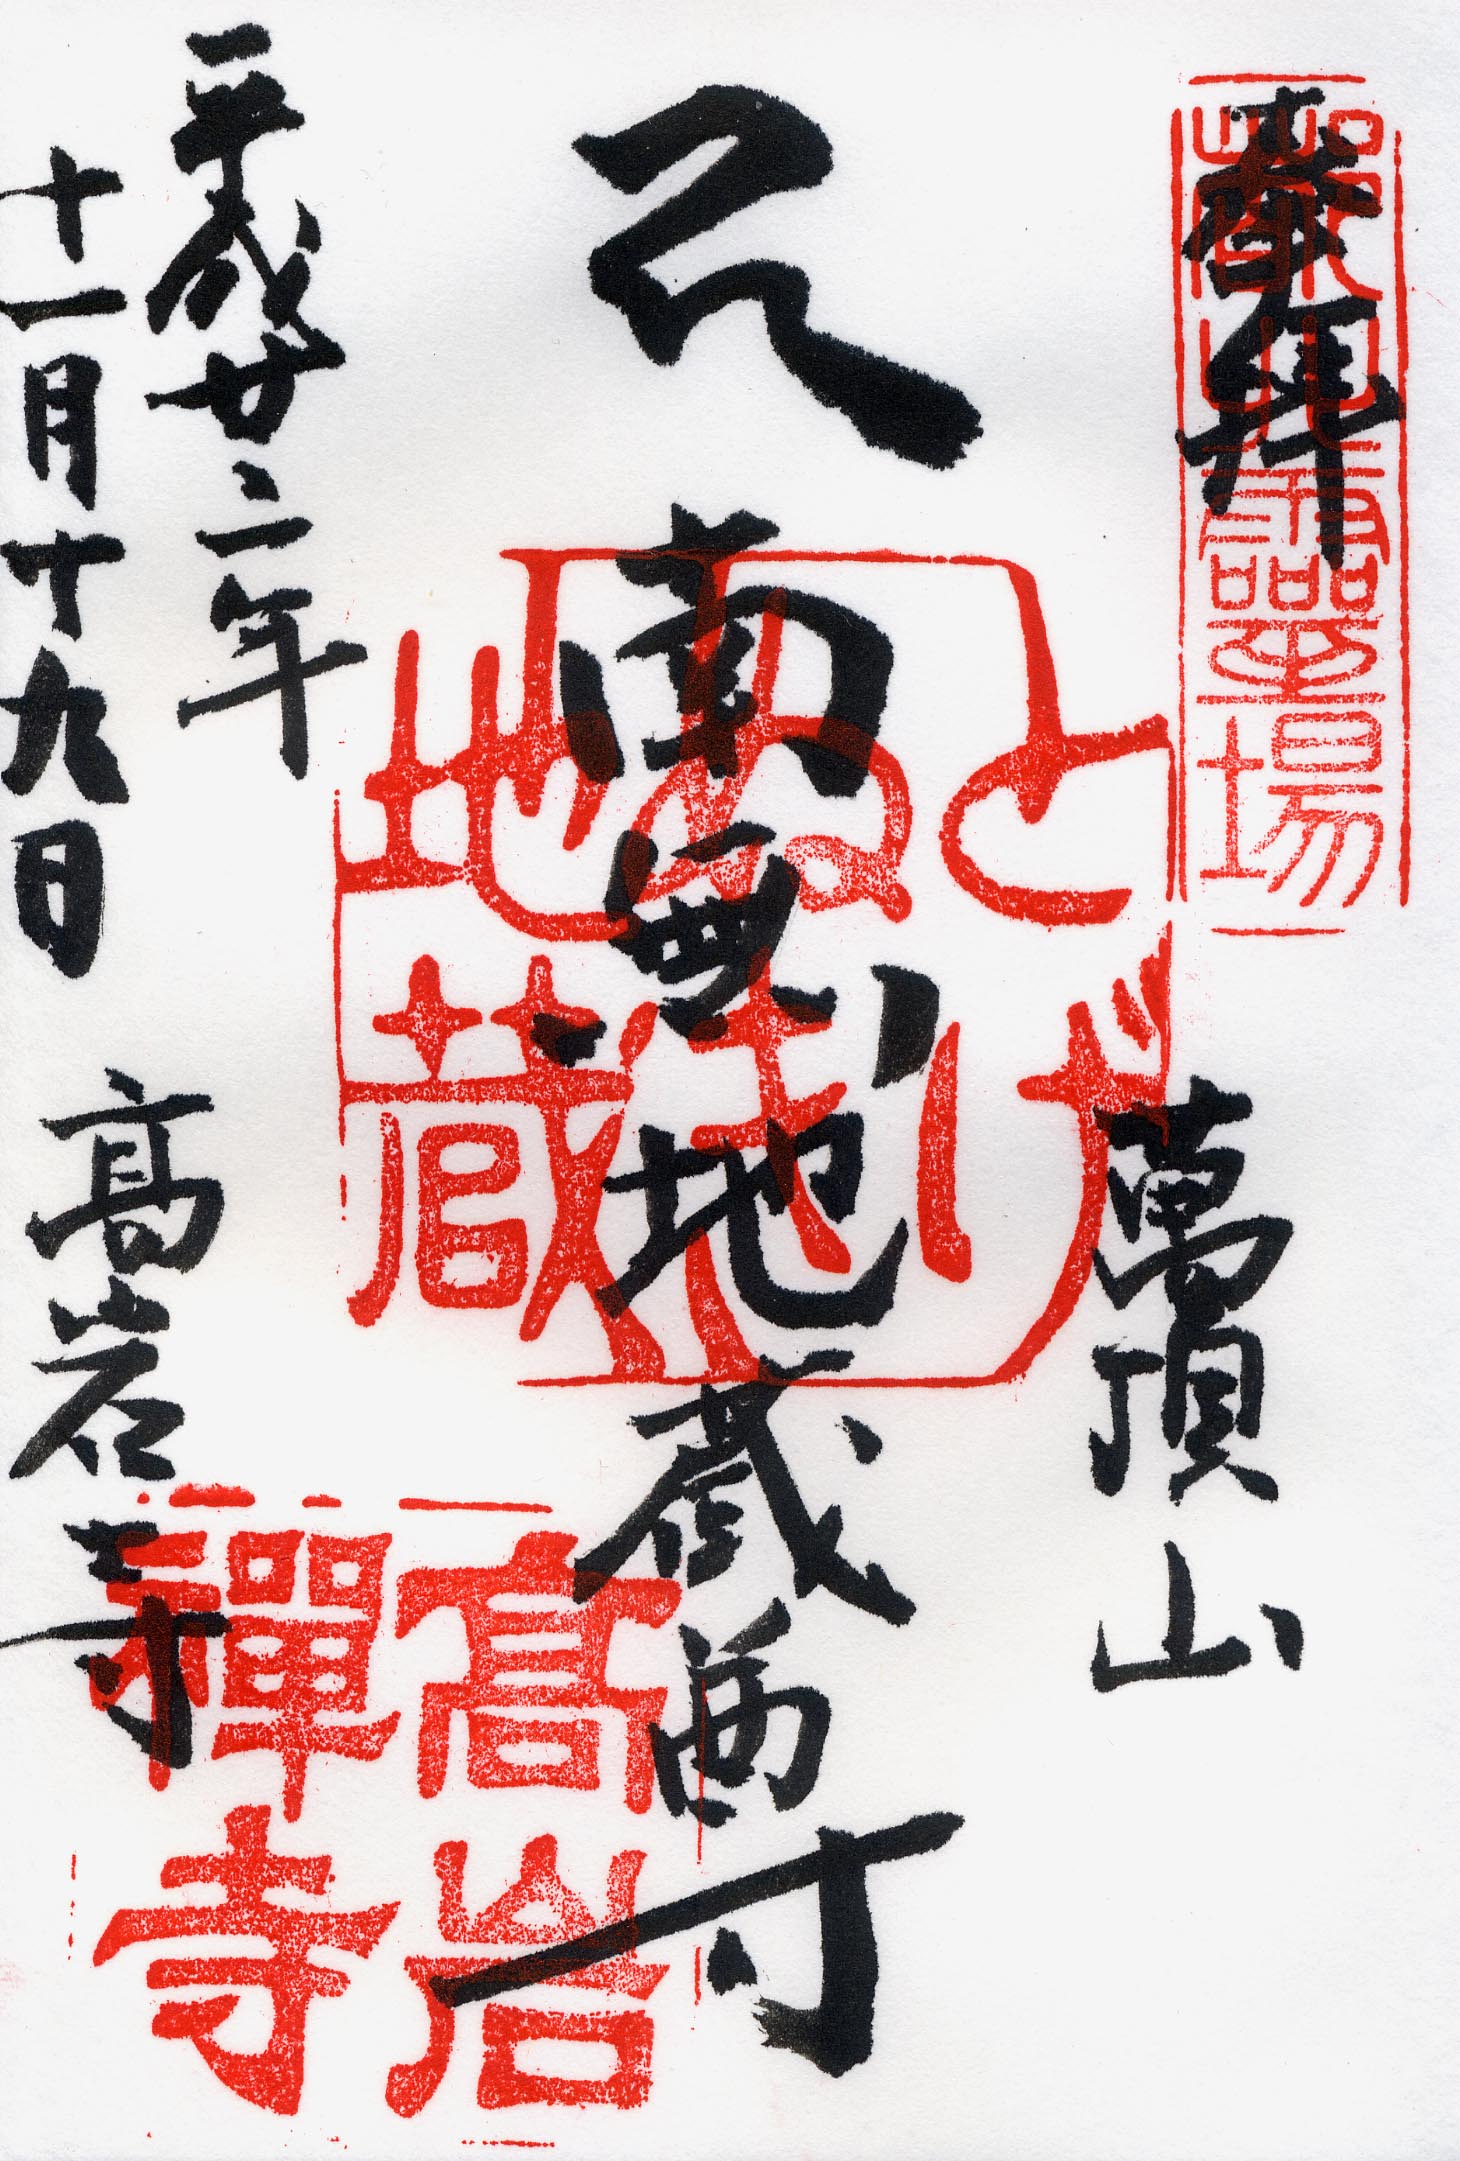 奉拝
霊場
萬頂山
南無地蔵尊
とげ
ぬき
地蔵
平成廿二年
十一月十九日
高岩寺
高岩
禅寺